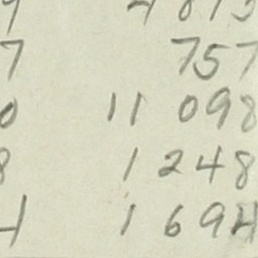 7 757
0 11 098
8 1 248
4 1 694